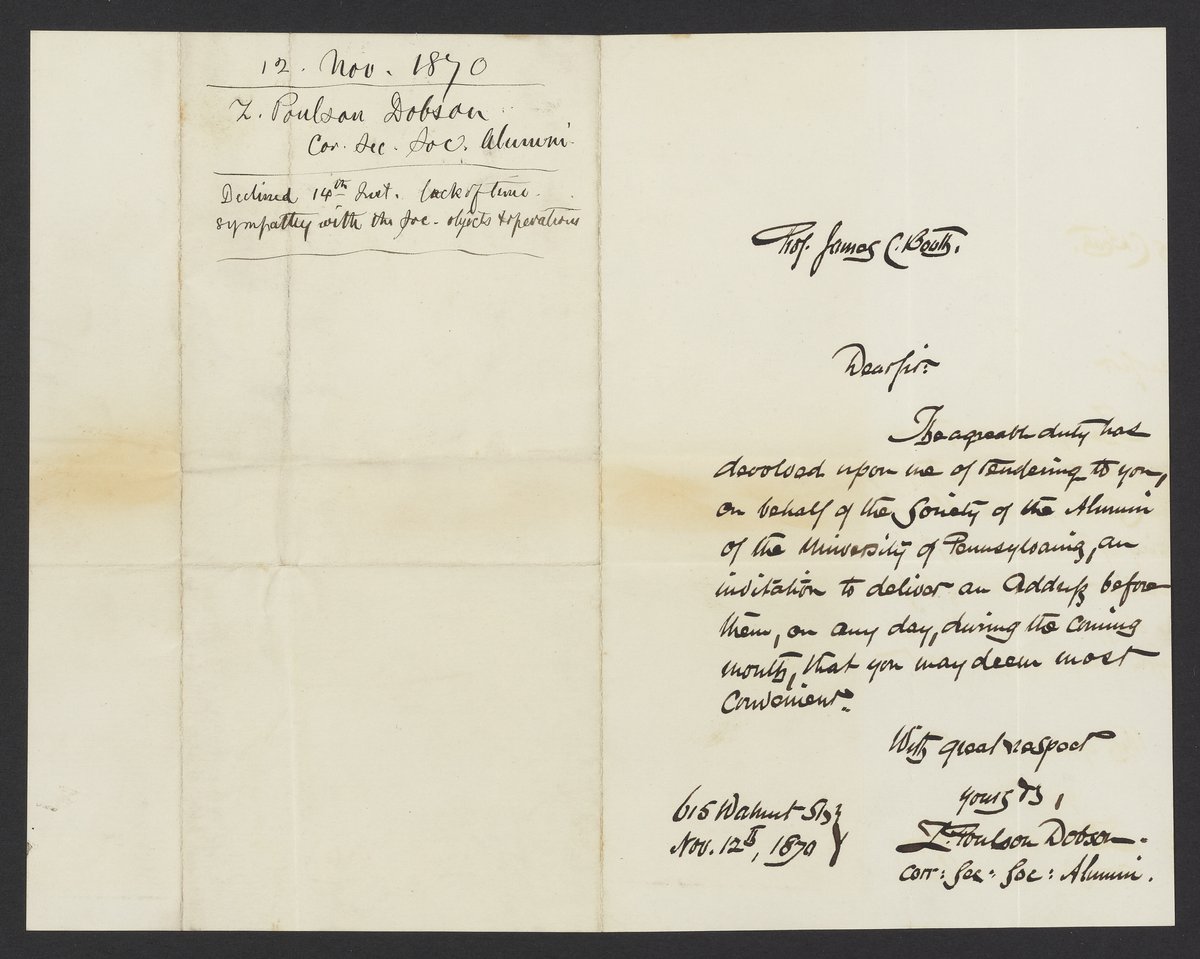 12. Nov. 1870
Z. Poulson Dobson
Cor. Sec. Soc. Alumni.
Declined 14th Inst. lack of time.
sympathy with the Soc. objects & operations
Prof. James C. Booth.
Dear Sir:
The agreeable duty has
devolved upon me of tendering to you,
on behalf of the Society of the Alumni
of the University of Pennsylvania, an
invitation to deliver an Address before
them, on any day, during the coming
month, that you may deem most
convenient.
With great respect
yours
615 Walnut St.
Nov. 12th, 1870
Z. Poulson Dobson.
Corr: Sec: Soc: Alumni.